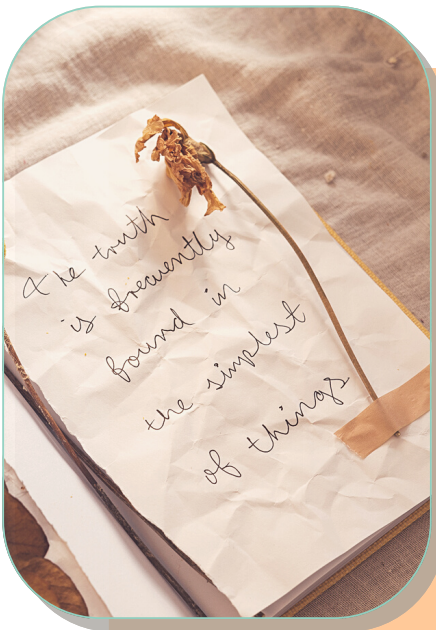 The truth
is frequently
found in
the simplest
of things